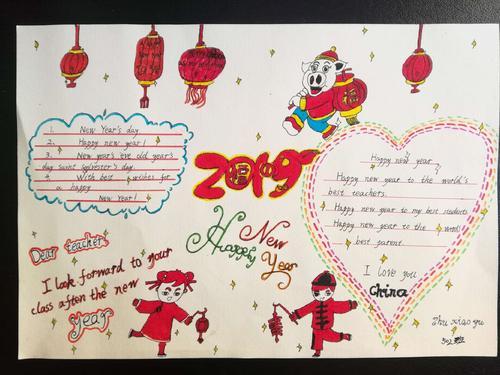 1. New Year's day
2. Happy new year!
3. New year's eve old year's
day saint sylvester's day.
4. With best wishes for
a happy
New Year!
2019
福
Happy new year
Happy new year to the world's
best teachers.
Happy new year to my best students
Happy new year to the world
best parent.
I love you
China
Happy New
Year
Dear teacher
I look forward to your
class after the new
year
Zhu xiao yu